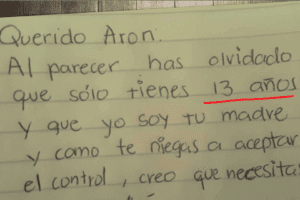 Querido Aron.
Al parecer has olvidado
que sólo tienes 13 años
y que yo soy tu madre
y como te niegas a aceptar
el control, creo que necesita